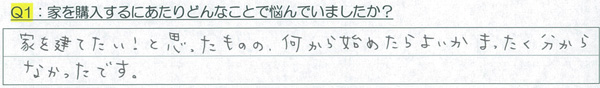 Q1：家を購入するにあたりどんなことで悩んでいましたか？
家を建てたい！と思ったものの、何から始めたらよいかまったく分から
なかったです。